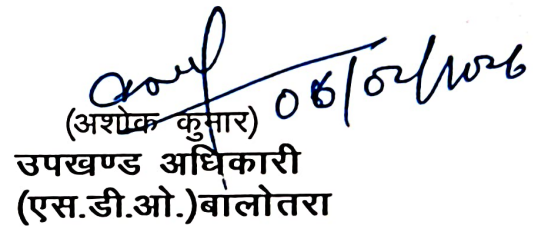 06/02/2026
(अशोक कुमार)
उपखण्ड अधिकारी
(एस.डी.ओ.)बालोतरा